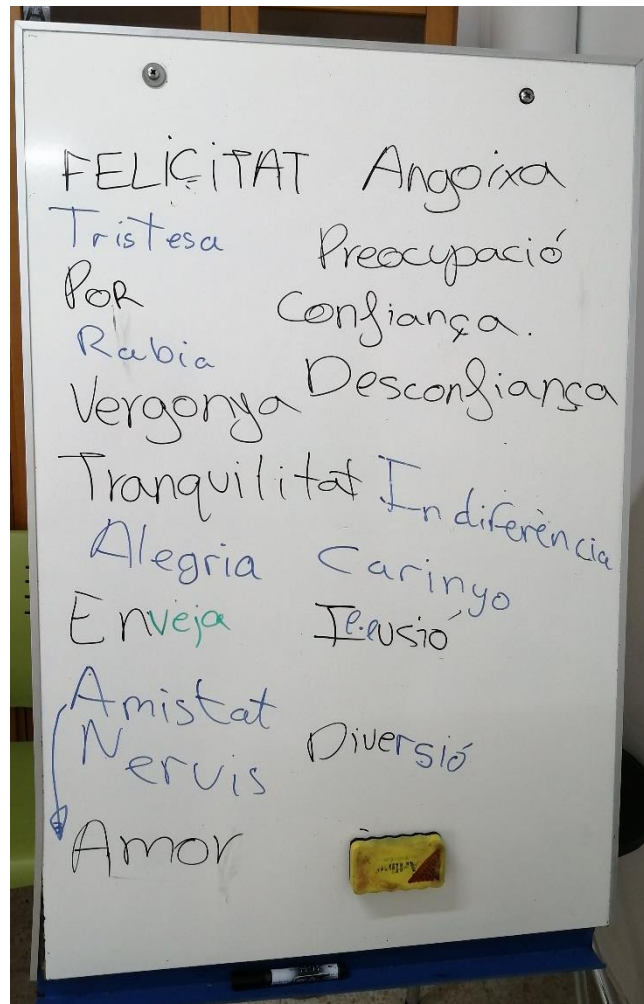 FELICITAT Angoixa
Tristesa Preocupació
POR Confiança.
Rabia Desconfiança
Vergonya
Tranquilitat Indiferència
Alegria Carinyo
Enveja Il·lusió
Amistat
Nervis Diversió
Amor
Artline